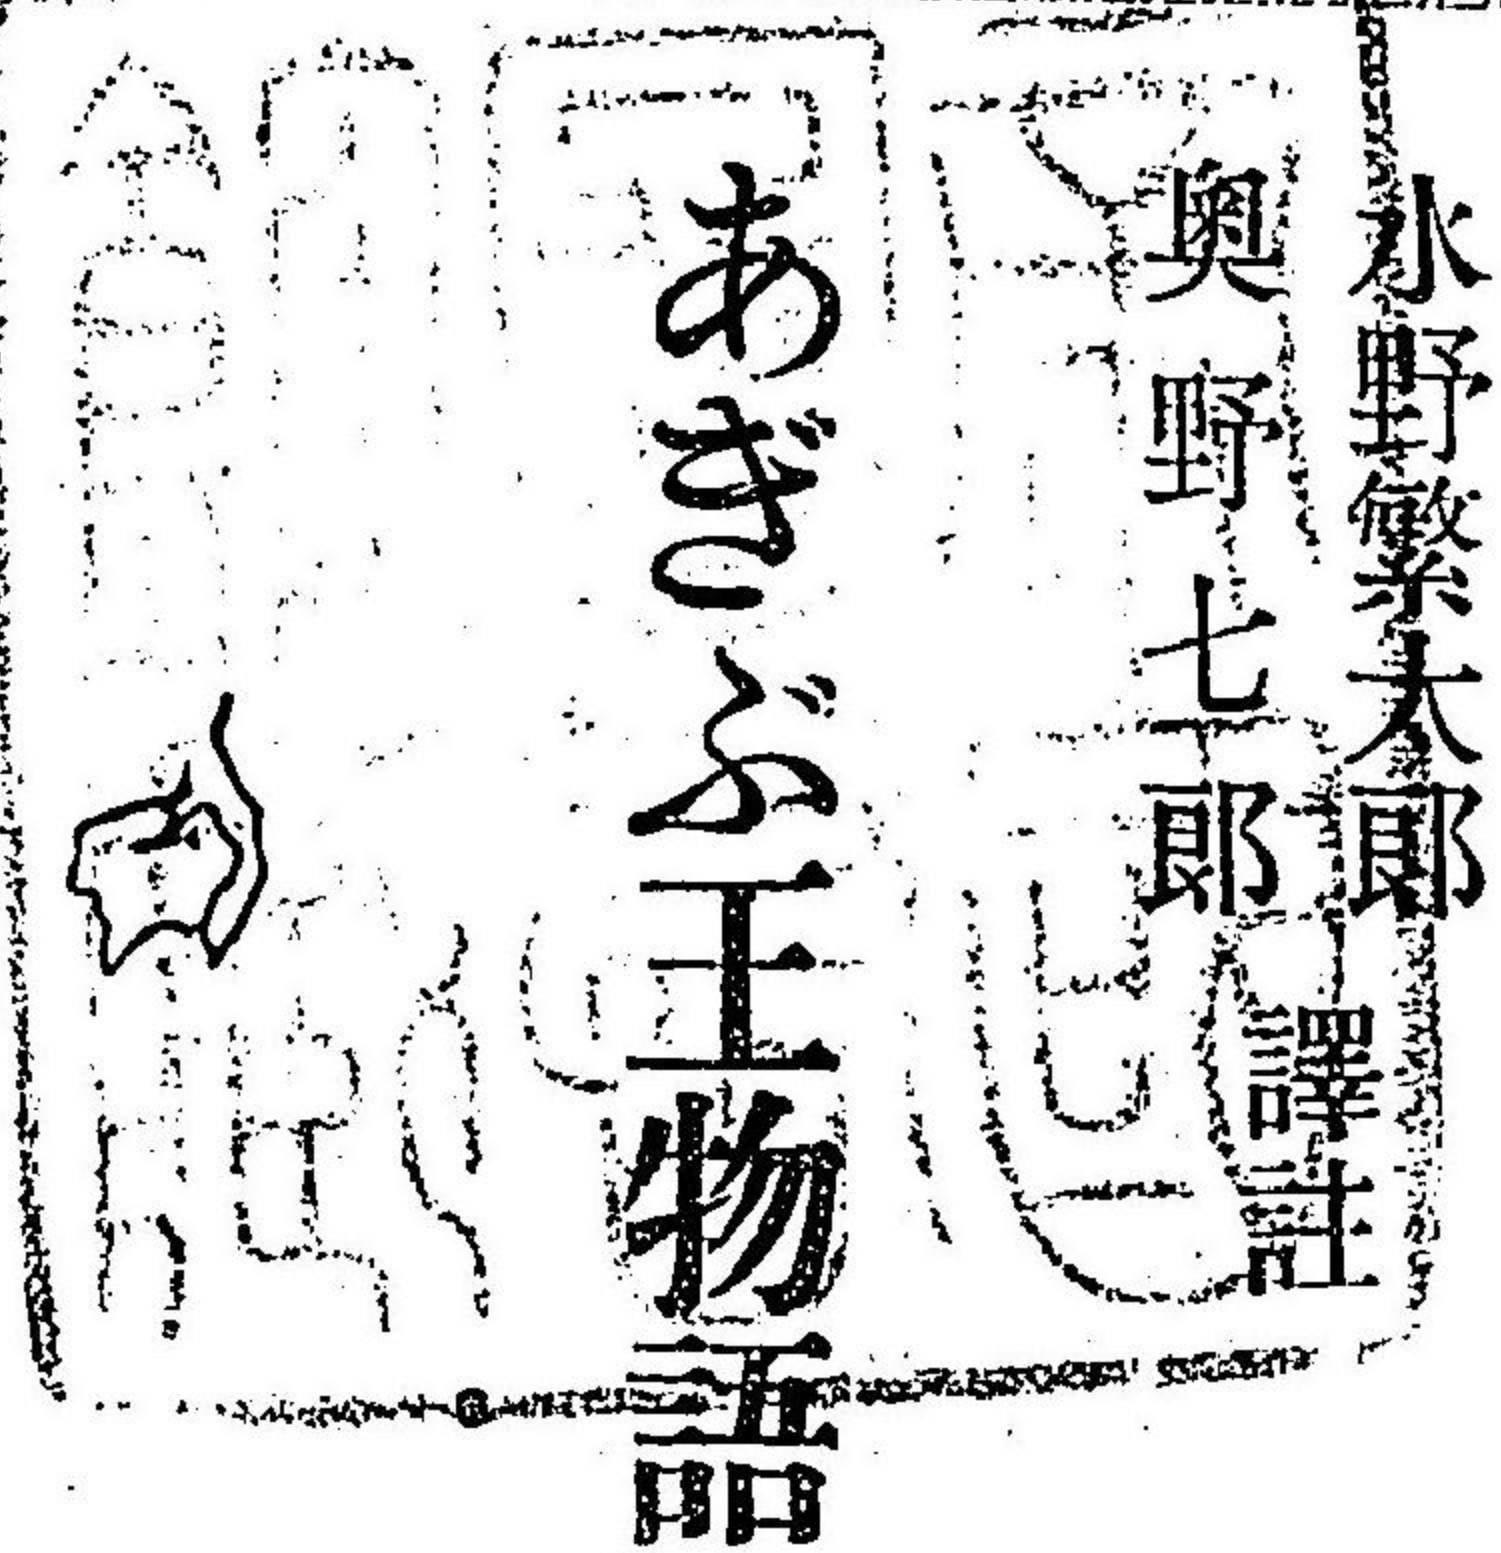 水野繁太郎
奥野七郎
譯註
あぎぶ王物語